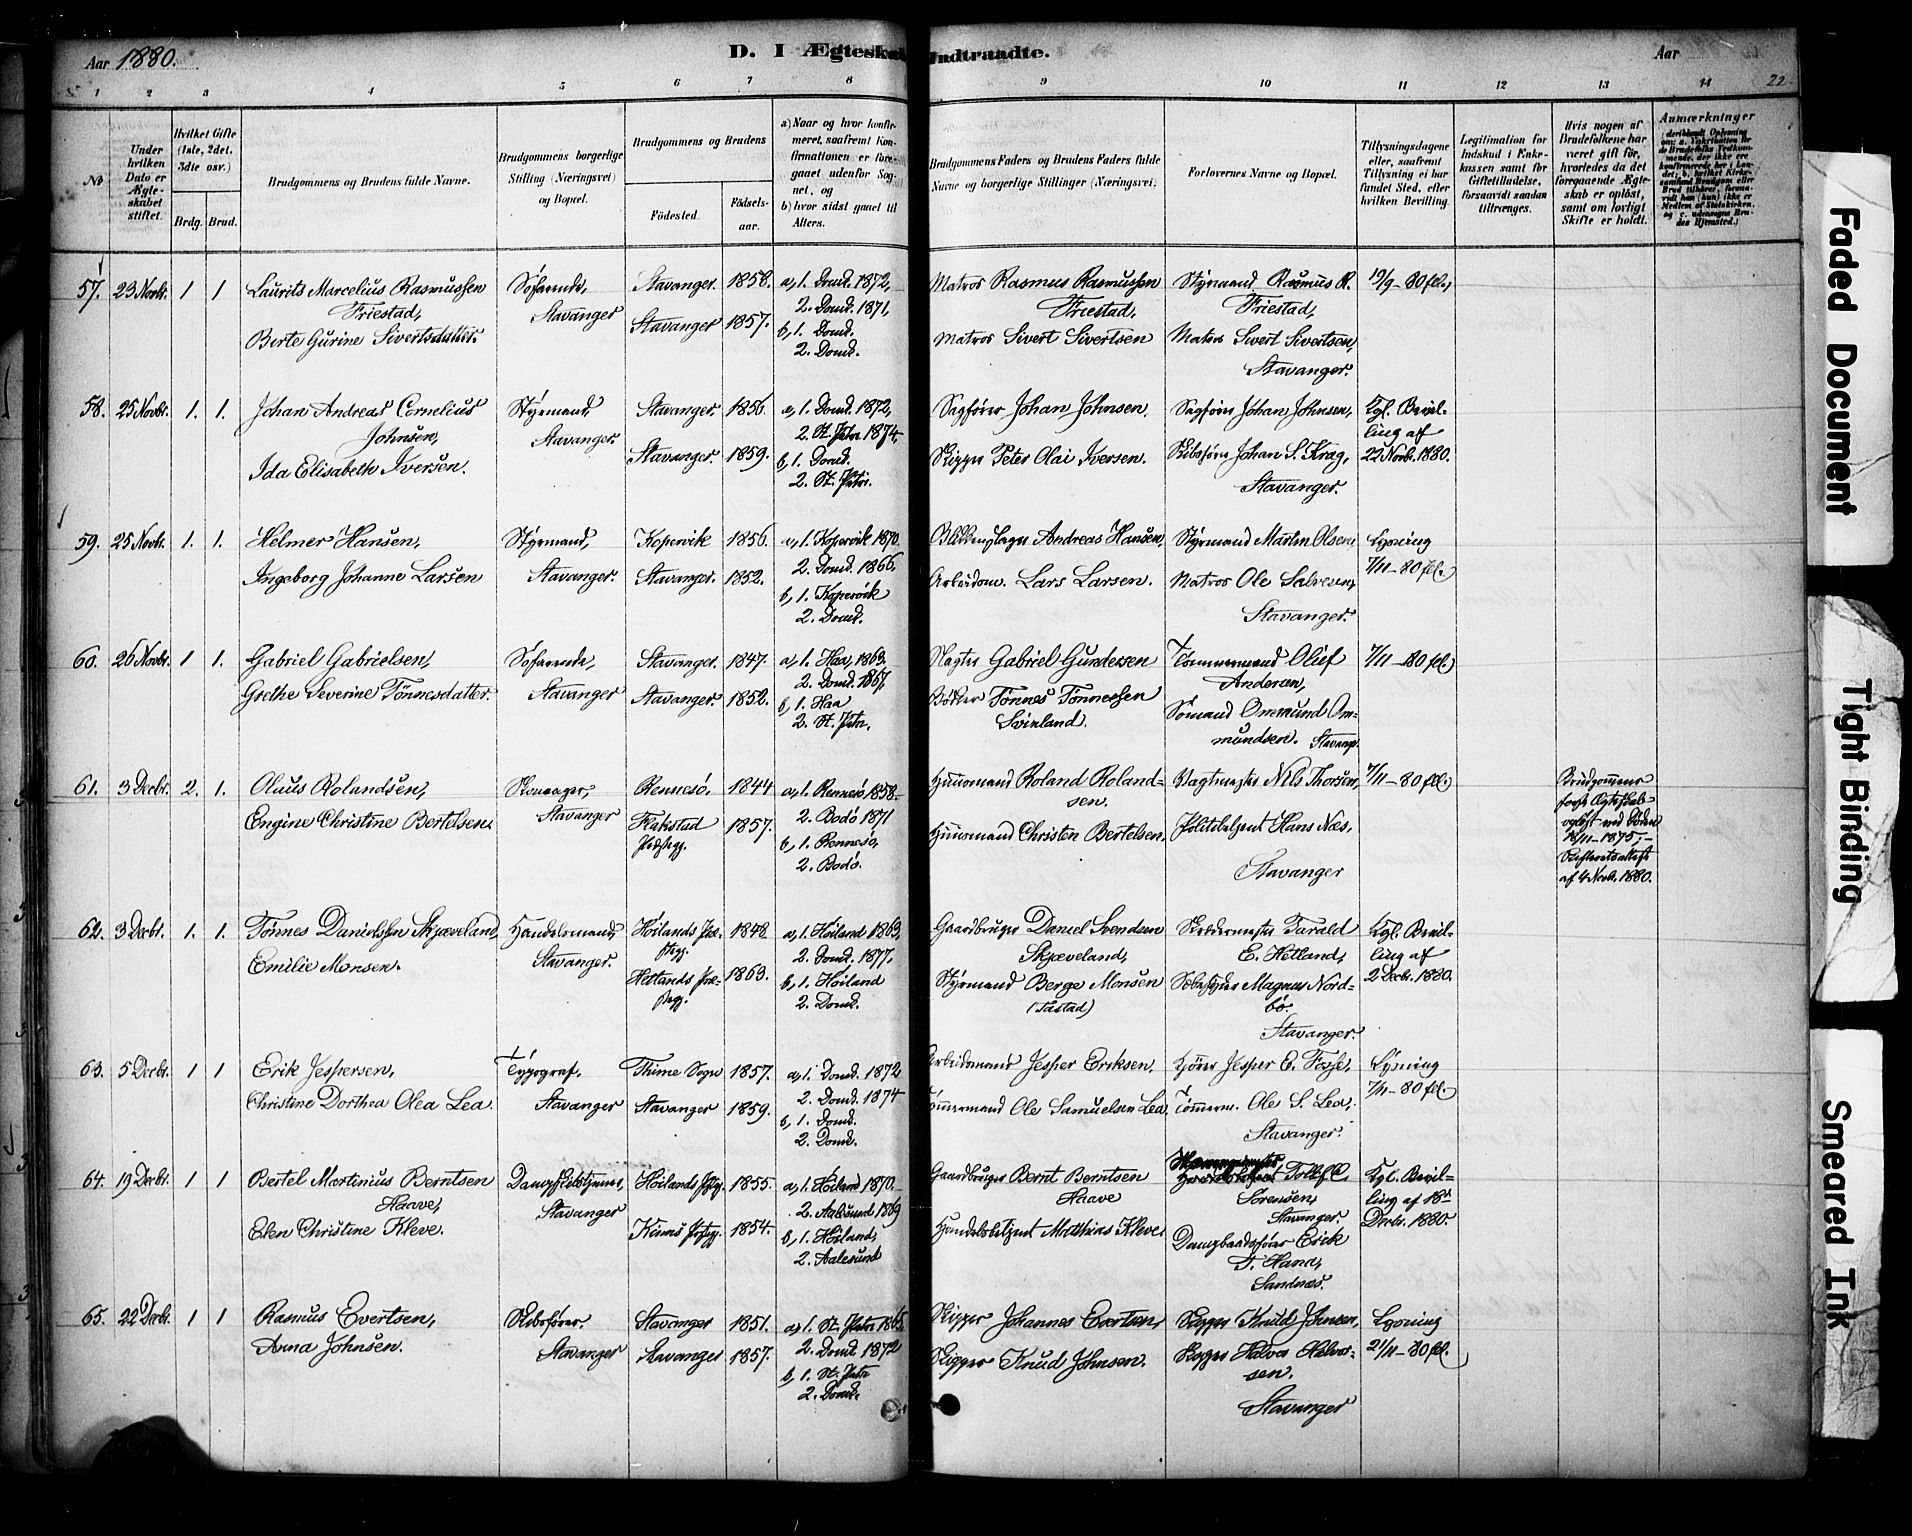 Aar 1880. D. I Ægteskab Indtraadte. Aar
1 2 3 4 5 6 7 8 9 10 11 12 13 14 22
No
Under hvilken Dato er Ægteskabet stiftet.
Hvilket Gifte (1ste, 2det, 3die osv.)
Brdg. Brud.
Brudgommens og Brudens fulde Navne.
Brudgommens borgerlige Stilling (Næringsvei) og Bopæl.
Brudgommens og Brudens
Fødested. Fødselsaar.
a) Naar og hvor konfirmeret, saafremt Konfirmationen er foregaaet udenfor Sognet, og
b) hvor sidst gaaet til Alters.
Brudgommens Faders og Brudens Faders fulde Navne og borgerlige Stillinger (Næringsvei).
Forlovernes Navne og Bopæl.
Tillysningsdagene eller, saafremt Tillysning ei har fundet Sted, efter hvilken Bevilling.
Legitimation for Indskud i Enkekassen samt for Giftetilladelse, forsaavidt saadan tiltrænges.
Hvis nogen af Brudefolkene har været gift før, hvorledes da det foregaaende Ægteskab er opløst, samt om lovligt Skifte er holdt.
Anmærkninger
57. 23 Novbr. 1 1 Laurits Marcelius Rasmussen Søfarende, Stavanger. 1858. a, 1. Domk. 1872, Matros Rasmus Rasmussen Styrmand Rasmus R. 19/9-80 fl.,
Friestad, Stavanger 2. Domk. 1871, Friestad, Friestad,
Berte Gurine Sivertsdatter. Stavanger 1857. b, 1. Domk. Matros Sivert Sivertsen Matros Sivert Sivertsen,
2. Domk. Stavanger.
58. 25 Novbr. 1. 1. Johan Andreas Cornelius Styrmand, Stavanger. 1856. a, 1. Domk. 1872, Sagfører Johan Johnsen, Sagfører Johan Johnsen, Kgl. Bevil-
Johnsen, Stavanger 2. St. Petri 1874, ling af
Ida Elisabeth Iversen. Stavanger. 1859. b, 1. Domk. Skipper Peter Olai Iversen. Skibsfører Johan S. Krag, 22 Novbr. 1880.
2. St. Petri. Stavanger.
59. 25 Novbr. 1. 1. Helmer Hansen, Styrmand, Kopervik 1856. a, 1. Kopervik 1870. Blikkenslager Andreas Hansen, Styrmand Martin Olsen, Lysning
Ingeborg Johanne Larsen Stavanger. Stavanger. 1852. 2. Domk. 1866, Arbeidsm. Lars Larsen. Matros Ole Salvesen, 7/11-80 fl.
b, 1. Kopervik Stavanger.
2. Domk.
60. 26 Novbr. 1 1. Gabriel Gabrielsen, Søfarende, Stavanger. 1847. a, 1. Haa, 1863. Vægter Gabriel Gundersen Tømmermand Oluf 7/11-80 fl.
Grethe Severine Tønnesdatter. Stavanger Stavanger. 1852. 2. Domk. 1867, Bødker Tønnes Tønnessen Andersen,
b, 1. Haa Svinland. Sømand Ommund Om-
2. St. Petri. mundsen. Stavanger
61. 3 Decbr. 2. 1. Olaus Rolandsen, Skomager, Rennesø. 1844 a, 1. Rennesø 1858. Huusmand Roland Roland- Vagtmester Nils Thorsen, 7/11-80 fl. Brudgommens
Engine Christine Bertelsen Stavanger Flakstad 1857. 2. Bodø 1871 sen. første Ægteskab
Præstegj. b, 1. Rennesø, Huusmand Christen Bertelsen. Politibetjent Hans Næs, opløst ved Døden
2. Bodø. Stavanger 18/11-1875,-
Skifteretsattest
af 4 Novb. 1880.
62. 3 Decbr. 1. 1. Tønnes Danielsen Skjæveland, Handelsmand, Høilands Præ- 1848 a, 1. Høiland 1863, Gaardbruger Daniel Svendsen Skrædermester Tarald Kgl. Bevil-
Emilie Monsen. Stavanger. stegj. 2. Domk. 1877, Skjæveland, E. Hetland, ling af
Hetlands Præ- 1863. b, 1. Høiland Styrmand Berge Monsen Magnus Nord- 2 Decbr. 1880.
stegj. 2. Domk. (Tastad) bø.
Stavanger.
63. 5 Decbr. 1 1 Erik Jespersen, Typograf. Thime Sogn 1857. a, 1. Domk. 1872 Arbeidsmand Jesper Eriksen. Jesper E. Fosse, Lysning
Christine Dorthea Olea Lea. Stavanger Stavanger 1859. 2. Domk. 1874 Tømmermand Ole Samuelsen Lea Tømmerm. Ole S. Lea, 7/11-80 fl.
b, 1. Domk. Stavanger.
2. Domk.
64. 19 Decbr. 1 1 Bertel Martinius Berntsen Stavanger Høilands Pstgj. 1855. a, 1. Høiland 1870. Gaardbruger Bernt Berntsen Tollef Kgl. Bevil-
Haave, 2. Aalesund 1869 Haave Sørensen, ling af 18de
Elen Christine Kleve. Kinns Pstgj. 1854. b, 1. Høiland, Handelsbetjent Matthias Kleve, Stavanger. Decbr. 1880.
2. Aalesund Dampbaadsfører Erik
T. Hana,
Sandnæs.
65. 22 Decbr. 1 1 Rasmus Evertsen, Skibsfører. Stavanger 1851. a, 1. St. Petri 1865. Skipper Johannes Evertsen, Skipper Knud Johnsen, Lysning
Anna Johnsen. Stavanger Stavanger 1857. 2. Domk. 1872 Skipper Knud Johnsen. Skipper Halvor Halvor- 21/11-80 fl.
b, 1. St. Petri sen.
2. Domk. Stavanger
Faded Document
Tight Binding
Smeared Ink